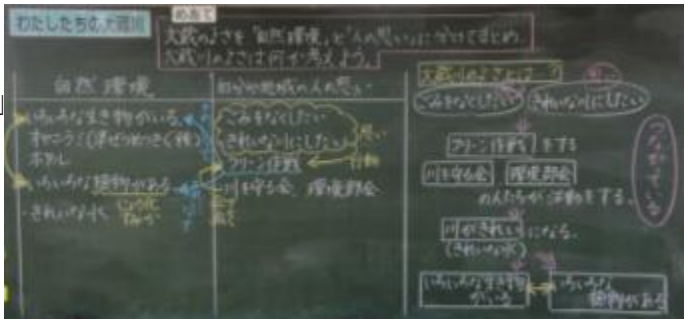 わたしたちの大蔵川
めあて
大蔵川のよさを「自然環境」と「人の思い」に分けてまとめ、
大蔵川のよさは何か考えよう。
自然環境
地域の人の思い
いろいろな生き物がいる。
ホタル
いろいろな植物がある
・きれいな水
ごみをなくしたい
きれいな川にしたい
思い
クリーン作戦
行動
川を守る会、環境部会
大蔵川のよさとは?
ごみをなくしたい
きれいな川にしたい
クリーン作戦をする
川を守る会 環境部会
の人たちが活動をする。
川がきれいになる。
(きれいな水)
いろいろな生き物
がいる
いろいろな
植物がある
つながっている